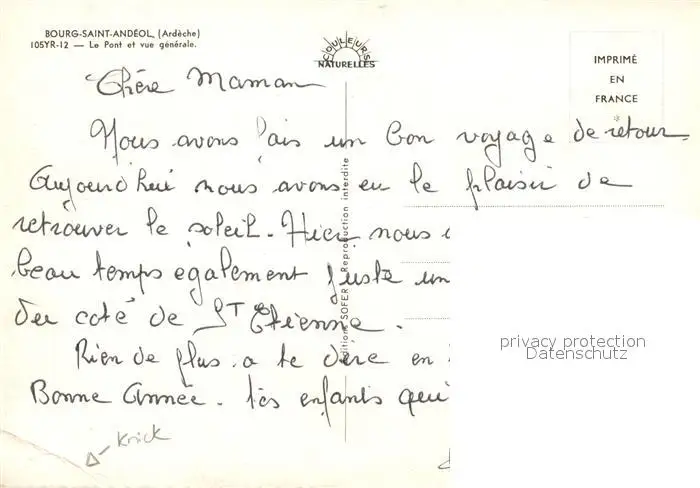 BOURG-SAINT-ANDÉOL (Ardèche)
105YR-12 — Le Pont et vue générale.
COULEURS
NATURELLES
IMPRIMÉ
EN
FRANCE
Chère Maman
Nous avons fais un bon voyage de retour
Aujourd'hui nous avons eu le plaisir de
retrouver le soleil. Hier nous
beau temps également juste un
du coté de St Etienne.
Rien de plus a te dire en
Bonne Année. Les enfants qui
Editions SOFER Reproduction interdite
privacy protection
Datenschutz
Knick